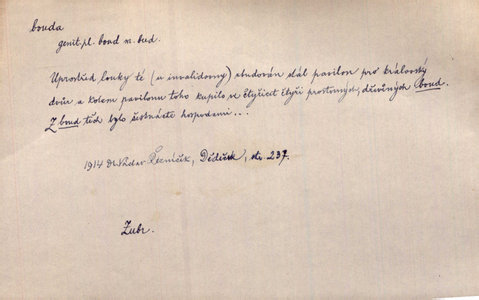 bouda
genit. pl. boud m. bud.
Uprostřed louky té (u invalidovny) zbudován stál pavilon pro královský
dvůr a kolem pavilonu toho kupilo se čtyřicet čtyři prostranných, dřevěných boud.
Z boud těch bylo šestnácte hospodami...
1914 Dr. Václav Řezníček, Dědiček, str. 237.
Zubr.